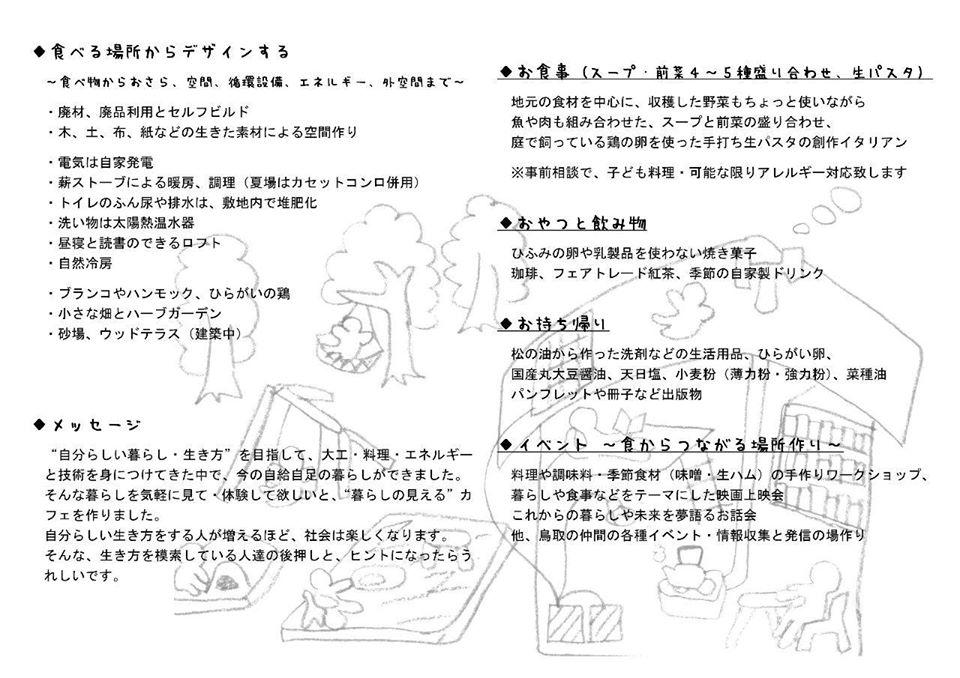 ◆食べる場所からデザインする
～食べ物からおさら、空間、循環設備、エネルギー、外空間まで～
・廃材、廃品利用とセルフビルド
・木、土、布、紙などの生きた素材による空間作り
・電気は自家発電
・薪ストーブによる暖房、調理（夏場はカセットコンロ併用）
・トイレのふん尿や排水は、敷地内で堆肥化
・洗い物は太陽熱温水器
・昼寝と読書のできるロフト
・自然冷房
・ブランコやハンモック、ひらがいの鶏
・小さな畑とハーブガーデン
・砂場、ウッドテラス（建築中）
◆メッセージ
“自分らしい暮らし・生き方”を目指して、大工・料理・エネルギー
と技術を身につけてきた中で、今の自給自足の暮らしができました。
そんな暮らしを気軽に見て・体験して欲しいと、“暮らしの見える”カ
フェを作りました。
自分らしい生き方をする人が増えるほど、社会は楽しくなります。
そんな、生き方を模索している人達の後押しと、ヒントになったらう
れしいです。
◆お食事（スープ・前菜４～５種盛り合わせ、生パスタ）
地元の食材を中心に、収穫した野菜もちょっと使いながら
魚や肉も組み合わせた、スープと前菜の盛り合わせ、
庭で飼っている鶏の卵を使った手打ち生パスタの創作イタリアン
※事前相談で、子ども料理・可能な限りアレルギー対応致します
◆おやつと飲み物
ひふみの卵や乳製品を使わない焼き菓子
珈琲、フェアトレード紅茶、季節の自家製ドリンク
◆お持ち帰り
松の油から作った洗剤などの生活用品、ひらがい卵、
国産丸大豆醤油、天日塩、小麦粉（薄力粉・強力粉）、菜種油
パンフレットや冊子など出版物
◆イベント ～食からつながる場所作り～
料理や調味料・季節食材（味噌・生ハム）の手作りワークショップ、
暮らしや食事などをテーマにした映画上映会
これからの暮らしや未来を夢語るお話会
他、鳥取の仲間の各種イベント・情報収集と発信の場作り